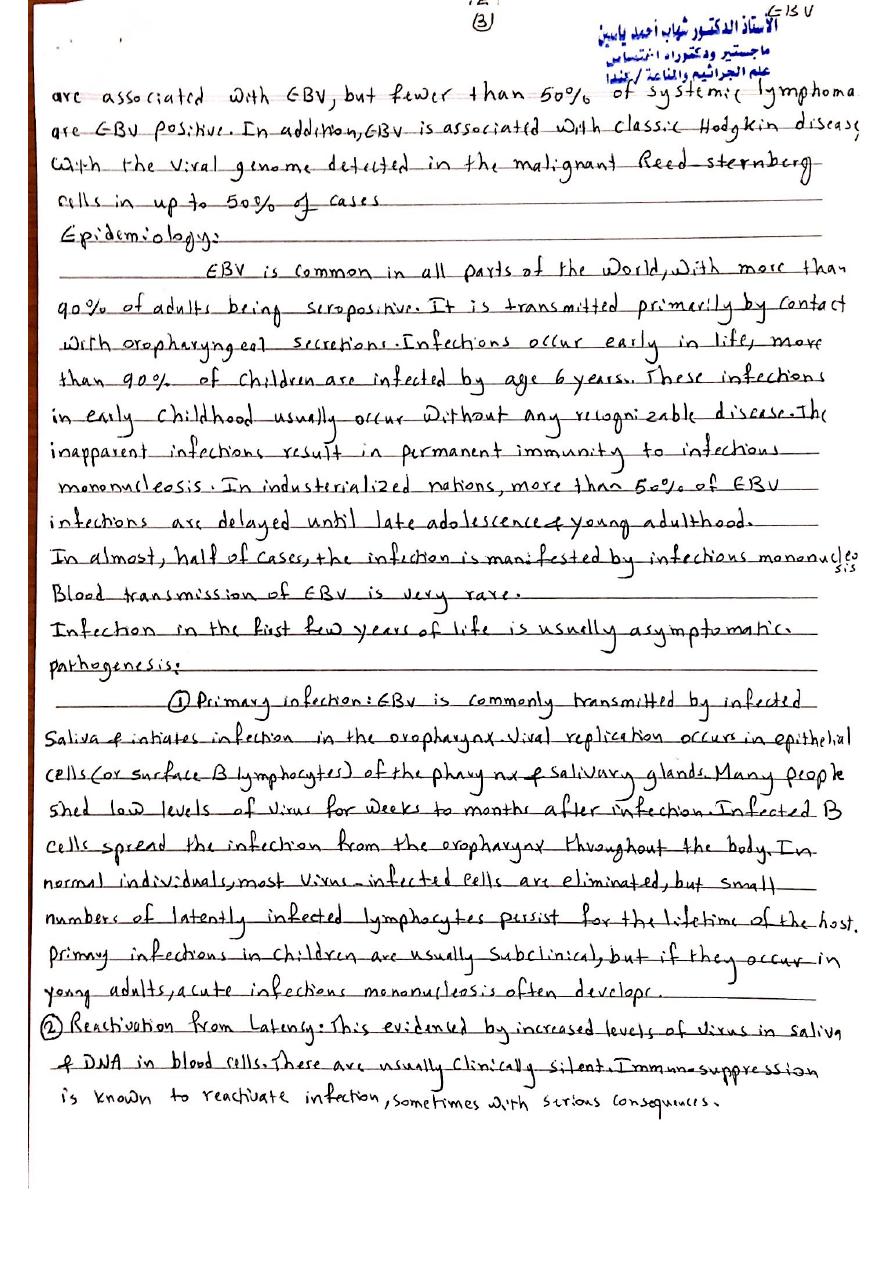 (3)
EBV
الأستاذ الدكتور شهاب أحمد ياسين
ماجستير ودكتوراه اختصاص
علم الجراثيم والمناعة / كندا
are associated with EBV, but fewer than 50% of systemic lymphoma
are EBV positive. In addition, EBV is associated with classic Hodgkin disease,
with the viral genome detected in the malignant Reed-sternberg
cells in up to 50% of cases
Epidemiology:
EBV is common in all parts of the world, with more than
90% of adults being seropositive. It is transmitted primarily by contact
with oropharyngeal secretions. Infections occur early in life, more
than 90% of children are infected by age 6 years.. These infections
in early childhood usually occur without any recognizable disease. The
inapparent infections result in permanent immunity to infections
mononucleosis. In industerialized nations, more than 50% of EBV
infections are delayed until late adolescence & young adulthood.
In almost, half of cases, the infection is manifested by infections mononucleosis
Blood transmission of EBV is very rare.
Infection in the first few years of life is usually asymptomatic.
pathogenesis:
① Primary infection: EBV is commonly transmitted by infected
Saliva & intiates infection in the oropharynx. Viral replication occurs in epithelial
cells (or surface B lymphocytes) of the pharynx & salivary glands. Many people
shed low levels of virus for weeks to months after infection. Infected B
cells spread the infection from the oropharynx throughout the body. In
normal individuals, most virus-infected cells are eliminated, but small
numbers of latently infected lymphocytes persist for the lifetime of the host.
Primary infections in children are usually subclinical, but if they occur in
young adults, acute infections mononucleosis often developr.
② Reactivation from Latency: This evidenced by increased levels of virus in saliva
& DNA in blood cells. There are usually clinically silent. Immunosuppression
is known to reactivate infection, sometimes with serious consequences.